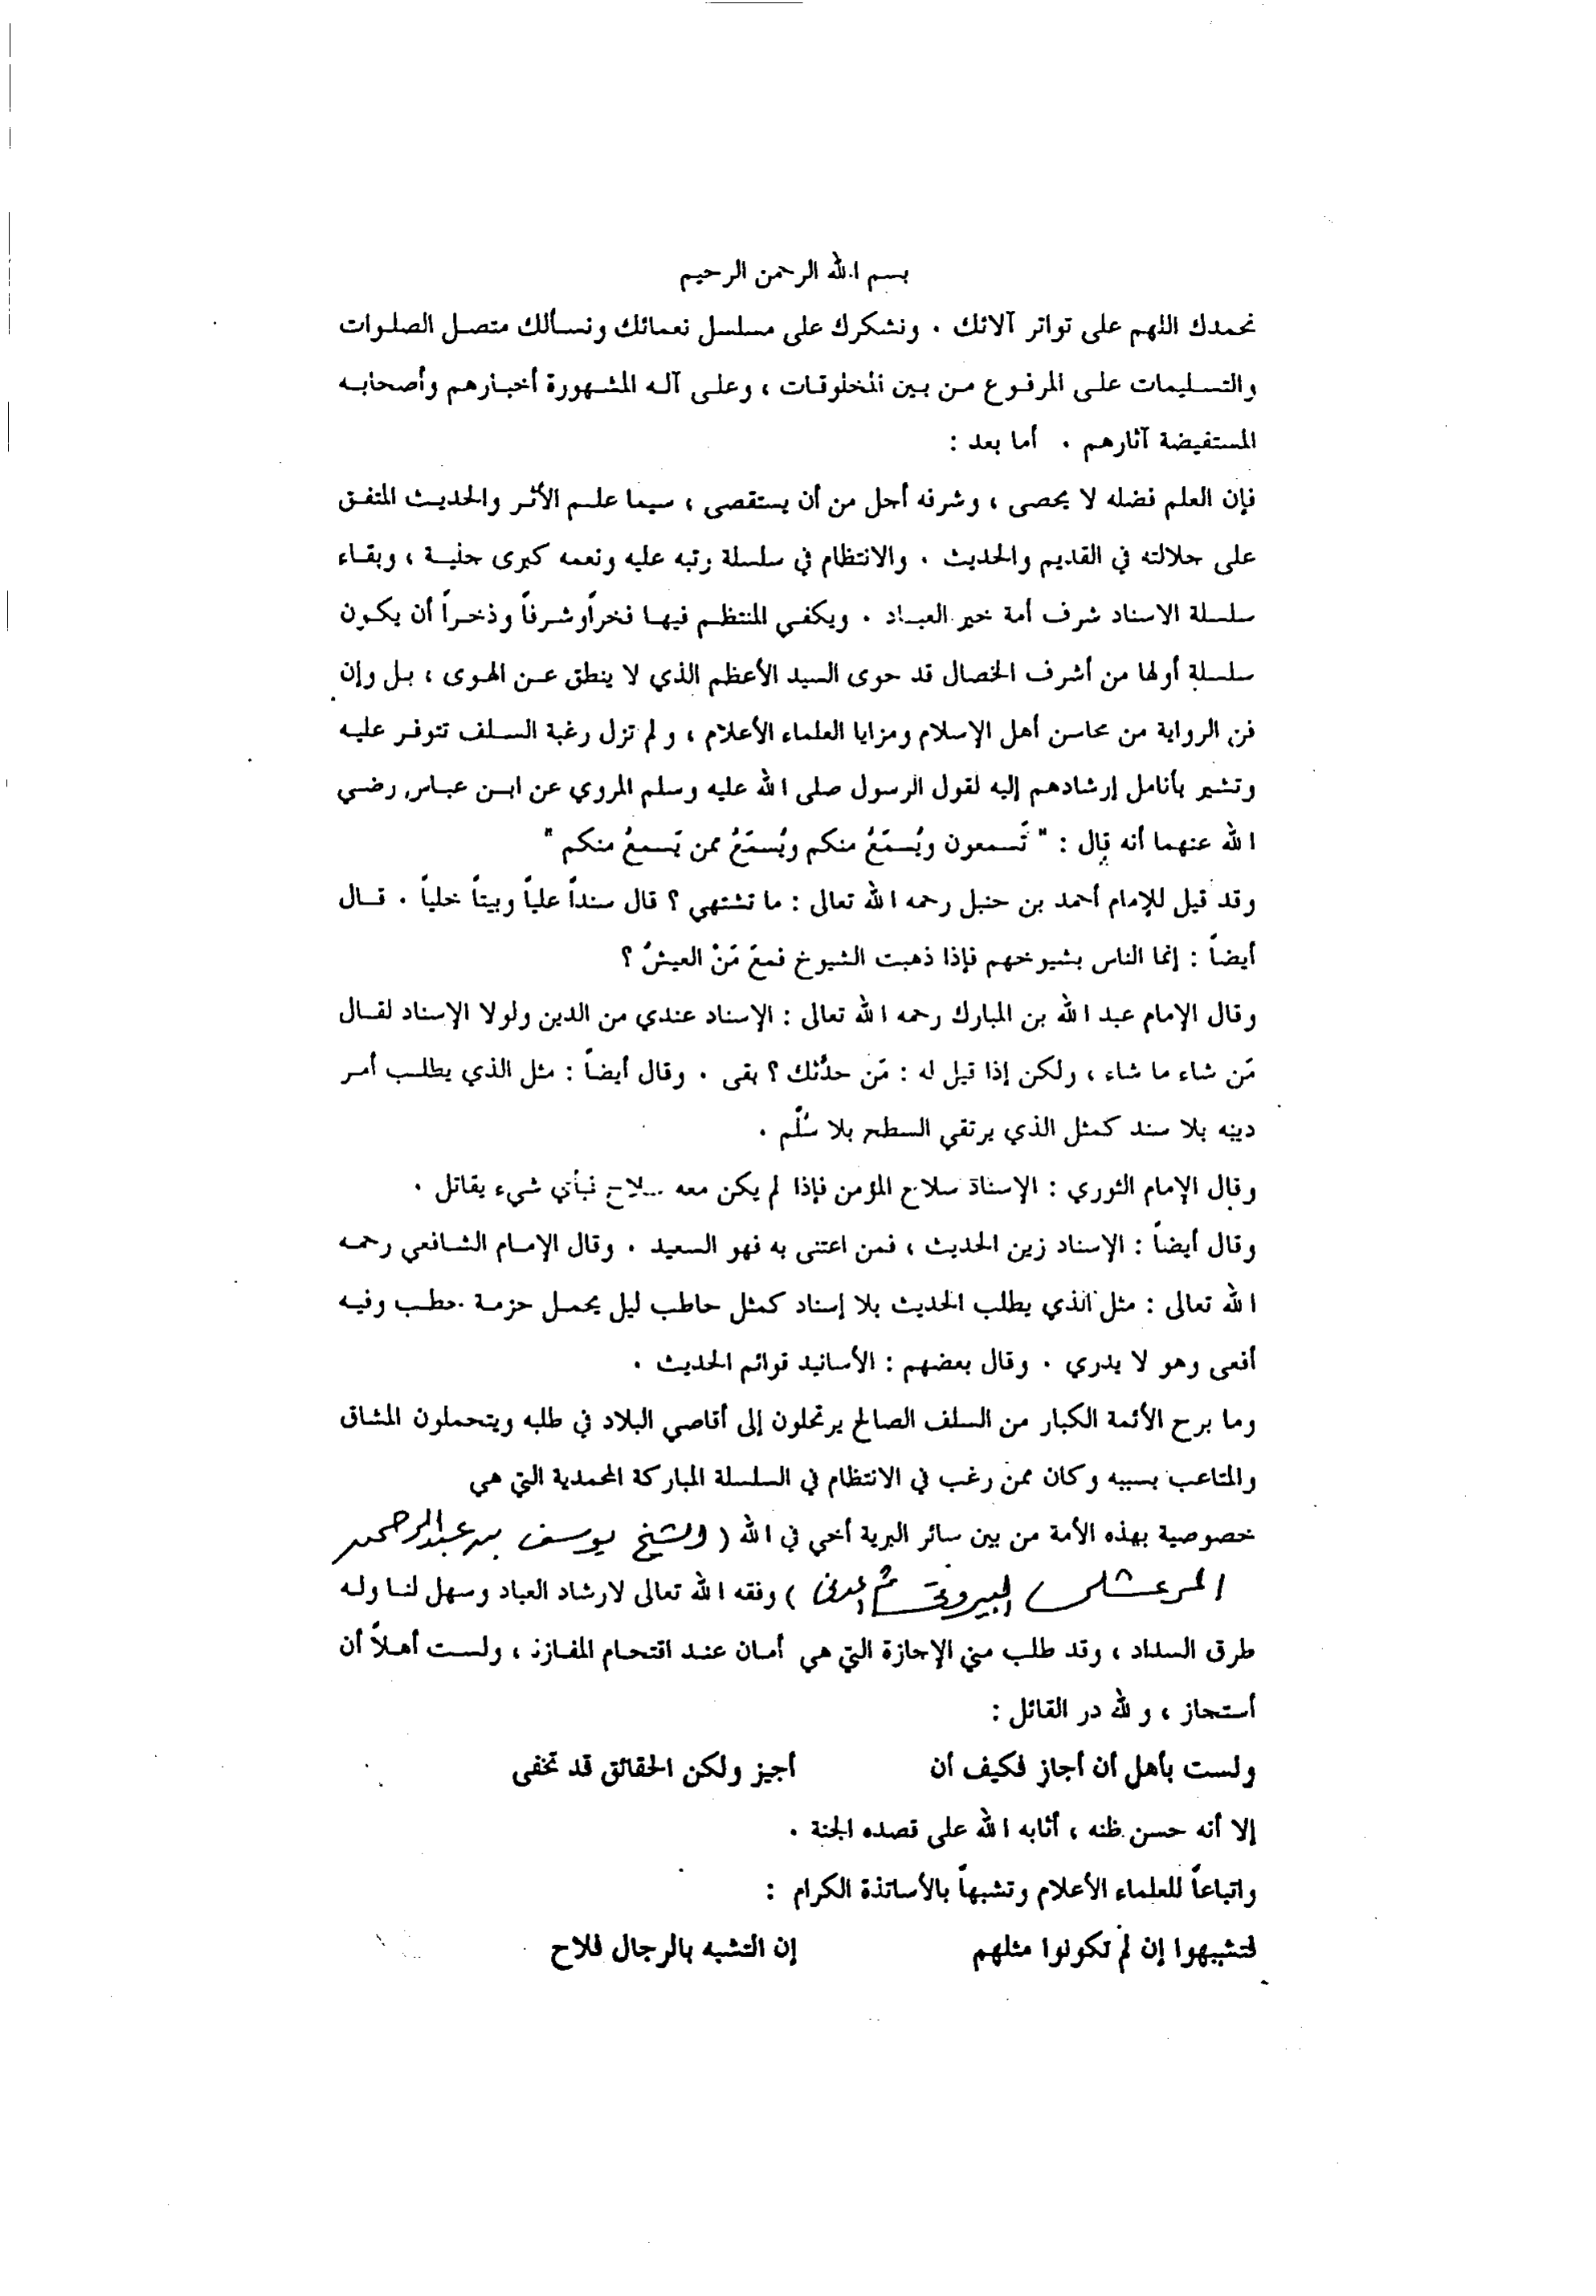 بسم الله الرحمن الرحيم
نحمدك اللهم على تواتر آلائك . ونشكرك على مسلسل نعمائك ونسألك متصل الصلوات
والتسليمات على المرفوع من بين المخلوقات ، وعلى آله المشهورة أخبارهم وأصحابه
المستفيضة آثارهم . أما بعد :
فإن العلم فضله لا يحصى ، وشرفه أجل من أن يستقصى ، سيما علم الأثر والحديث المتفق
على جلالته في القديم والحديث . والانتظام في سلسلة رتبه عليه ونعمه كبرى جلية ، وبقاء
سلسلة الاسناد شرف أمة خير العباد . ويكفي المنتظم فيها فخراً وشرفاً وذخراً أن يكون
سلسلة أولها من أشرف الخصال قد حوى السيد الأعظم الذي لا ينطق عن الهوى ، بل وإن
فن الرواية من محاسن أهل الإسلام ومزايا العلماء الأعلام ، ولم تزل رغبة السلف تتوفر عليه
وتشير بأنامل إرشادهم إليه لقول الرسول صلى الله عليه وسلم المروي عن ابن عباس رضي
الله عنهما أنه قال : " تَسمعون ويُسمَعُ منكم ويُسمَعُ ممن يَسمعُ منكم "
وقد قيل للإمام أحمد بن حنبل رحمه الله تعالى : ما تشتهي ؟ قال سنداً علياً وبيتاً خلياً . قال
أيضاً : إنما الناس بشيوخهم فإذا ذهبت الشيوخ فمعَ مَنْ العيشُ ؟
وقال الإمام عبد الله بن المبارك رحمه الله تعالى : الإسناد عندي من الدين ولولا الإسناد لقال
مَن شاء ما شاء ، ولكن إذا قيل له : مَن حدَّثك ؟ بقى . وقال أيضاً : مثل الذي يطلب أمر
دينه بلا سند كمثل الذي يرتقي السطح بلا سُلَّم .
وقال الإمام الثوري : الإسناد سلاح المؤمن فإذا لم يكن معه سلاح فبأي شيء يقاتل .
وقال أيضاً : الإسناد زين الحديث ، فمن اعتنى به فهو السعيد . وقال الإمام الشافعي رحمه
الله تعالى : مثل الذي يطلب الحديث بلا إسناد كمثل حاطب ليل يحمل حزمة حطب وفيه
أفعى وهو لا يدري . وقال بعضهم : الأسانيد قوائم الحديث .
وما برح الأئمة الكبار من السلف الصالح يرتحلون إلى أقاصي البلاد في طلبه ويتحملون المشاق
والمتاعب بسببه وكان ممن رغب في الانتظام في السلسلة المباركة المحمدية التي هي
خصوصية بهذه الأمة من بين سائر البرية أخي في الله ( الشيخ يوسف بن عبد الرحمن
المرعشلي البيروتي ثم المدني ) وفقه الله تعالى لارشاد العباد وسهل لنا وله
طرق السداد ، وقد طلب مني الإجازة التي هي أمان عند اقتحام المفازة ، ولست أهلاً أن
أستجاز ، ولله در القائل :
ولست بأهل أن أجاز فكيف أن أجيز ولكن الحقائق قد تخفى
إلا أنه حسن ظنه ، أثابه الله على قصده الجنة .
واتباعاً للعلماء الأعلام وتشبهاً بالأساتذة الكرام :
فتشبهوا إن لم تكونوا مثلهم إن التشبه بالرجال فلاح